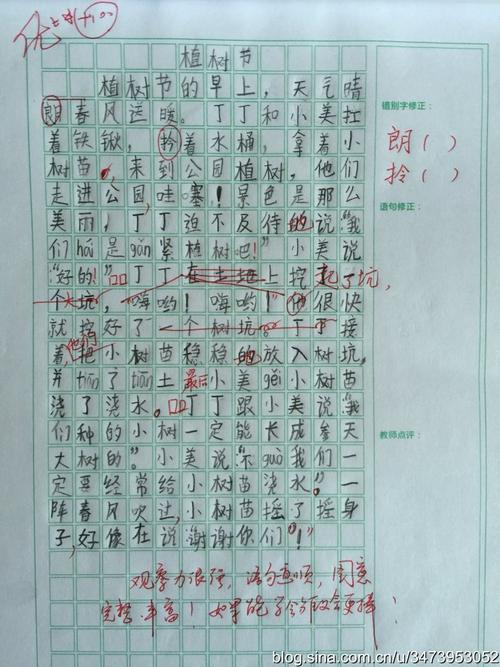 植树节
植树节的早上，天气晴
朗春风送暖。丁丁和小美扛
着铁锹，拎着水桶，拿着小
树苗，来到公园植树，他们
走进公园，哇塞！景色是那么
美丽，丁丁迫不及待的说“我
们hái是gǎn紧植树吧！”小美说
“好的！”丁丁在土地上挖起了坑，
个大坑，嗨哟！嗨哟！他很快
就挖好了一个树坑。丁丁接
着，他们把小树苗稳稳地放入树坑。
并tián了tián土最后小美gěi小树苗
浇了浇水。丁丁跟小美说“我
们种的小树一定能长成参天
大树的”。小美说“不guò我们一
定要经常给小树苗浇水”。一
阵春风吹过，小树苗摇了摇身
子，好像在说谢谢你们！”
错别字修正：
朗（ ）
拎（ ）
语句修正：
教师点评：
观察力很强，语句通顺，图意
完整丰富！
blog.sina.com.cn/u/3473953052